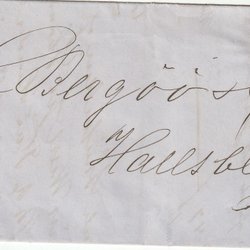 Bergöös
Hallsbe